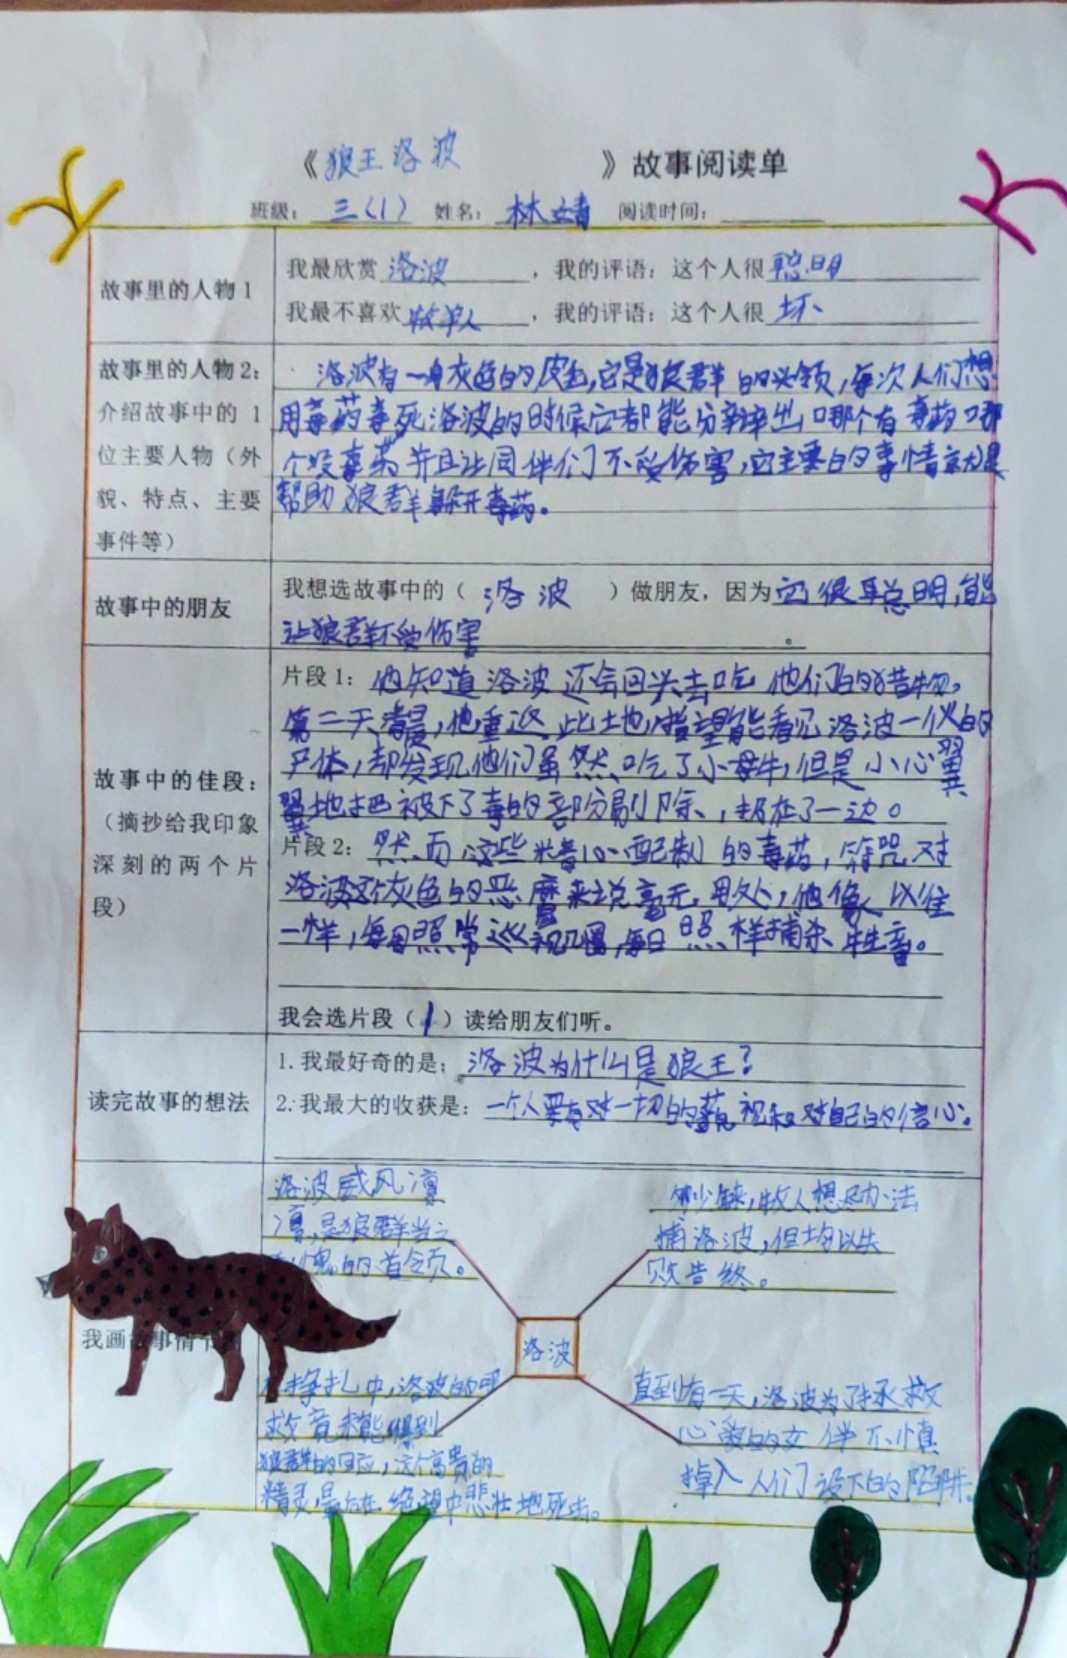 《狼王洛波》故事阅读单
班级：三(1) 姓名：林婧 阅读时间：
故事里的人物1
我最欣赏洛波，我的评语：这个人很聪明
我最不喜欢牧羊人，我的评语：这个人很坏
故事里的人物2：
介绍故事中的1
位主要人物（外
貌、特点、主要
事件等）
洛波有一身灰色的皮毛，它是狼群的头领，每次人们想
用毒药毒死洛波的时候它都能分辨出哪个有毒药哪
个没毒药并且让同伴们不受伤害，它主要的事情就是
帮助狼群躲开毒药。
故事中的朋友
我想选故事中的（洛波）做朋友，因为它很聪明，能
让狼群不受伤害。
故事中的佳段：
（摘抄给我印象
深刻的两个片
段）
片段1：他知道洛波还会回头去吃他们的猎物。
第二天清晨，他重返此地，指望能看见洛波一伙的
尸体，却发现他们虽然吃了小母牛，但是小心翼
翼地把被下了毒的部分剔除，扔在了一边。
片段2：然而，这些精心配制的毒药，符咒对
洛波这灰色的恶魔来说毫无用处，他像以往
一样，每日照常巡视几圈，每日照样捕杀牲畜。
我会选片段（1）读给朋友们听。
读完故事的想法
1.我最好奇的是：洛波为什么是狼王？
2.我最大的收获是：一个人要有对一切的藐视和对自己的信心。
我画故事情节
洛波威风凛
凛，是狼群当之
愧的首领。
牧人想尽办法
捕洛波，但均以失
败告终。
洛波
挣扎中，洛波的呼
救竟未能得到
狼群的回应，这个高贵的
精灵最后在绝望中悲壮地死去。
直到有一天，洛波为了拯救
心爱的女伴不慎
掉入人们设下的陷阱。